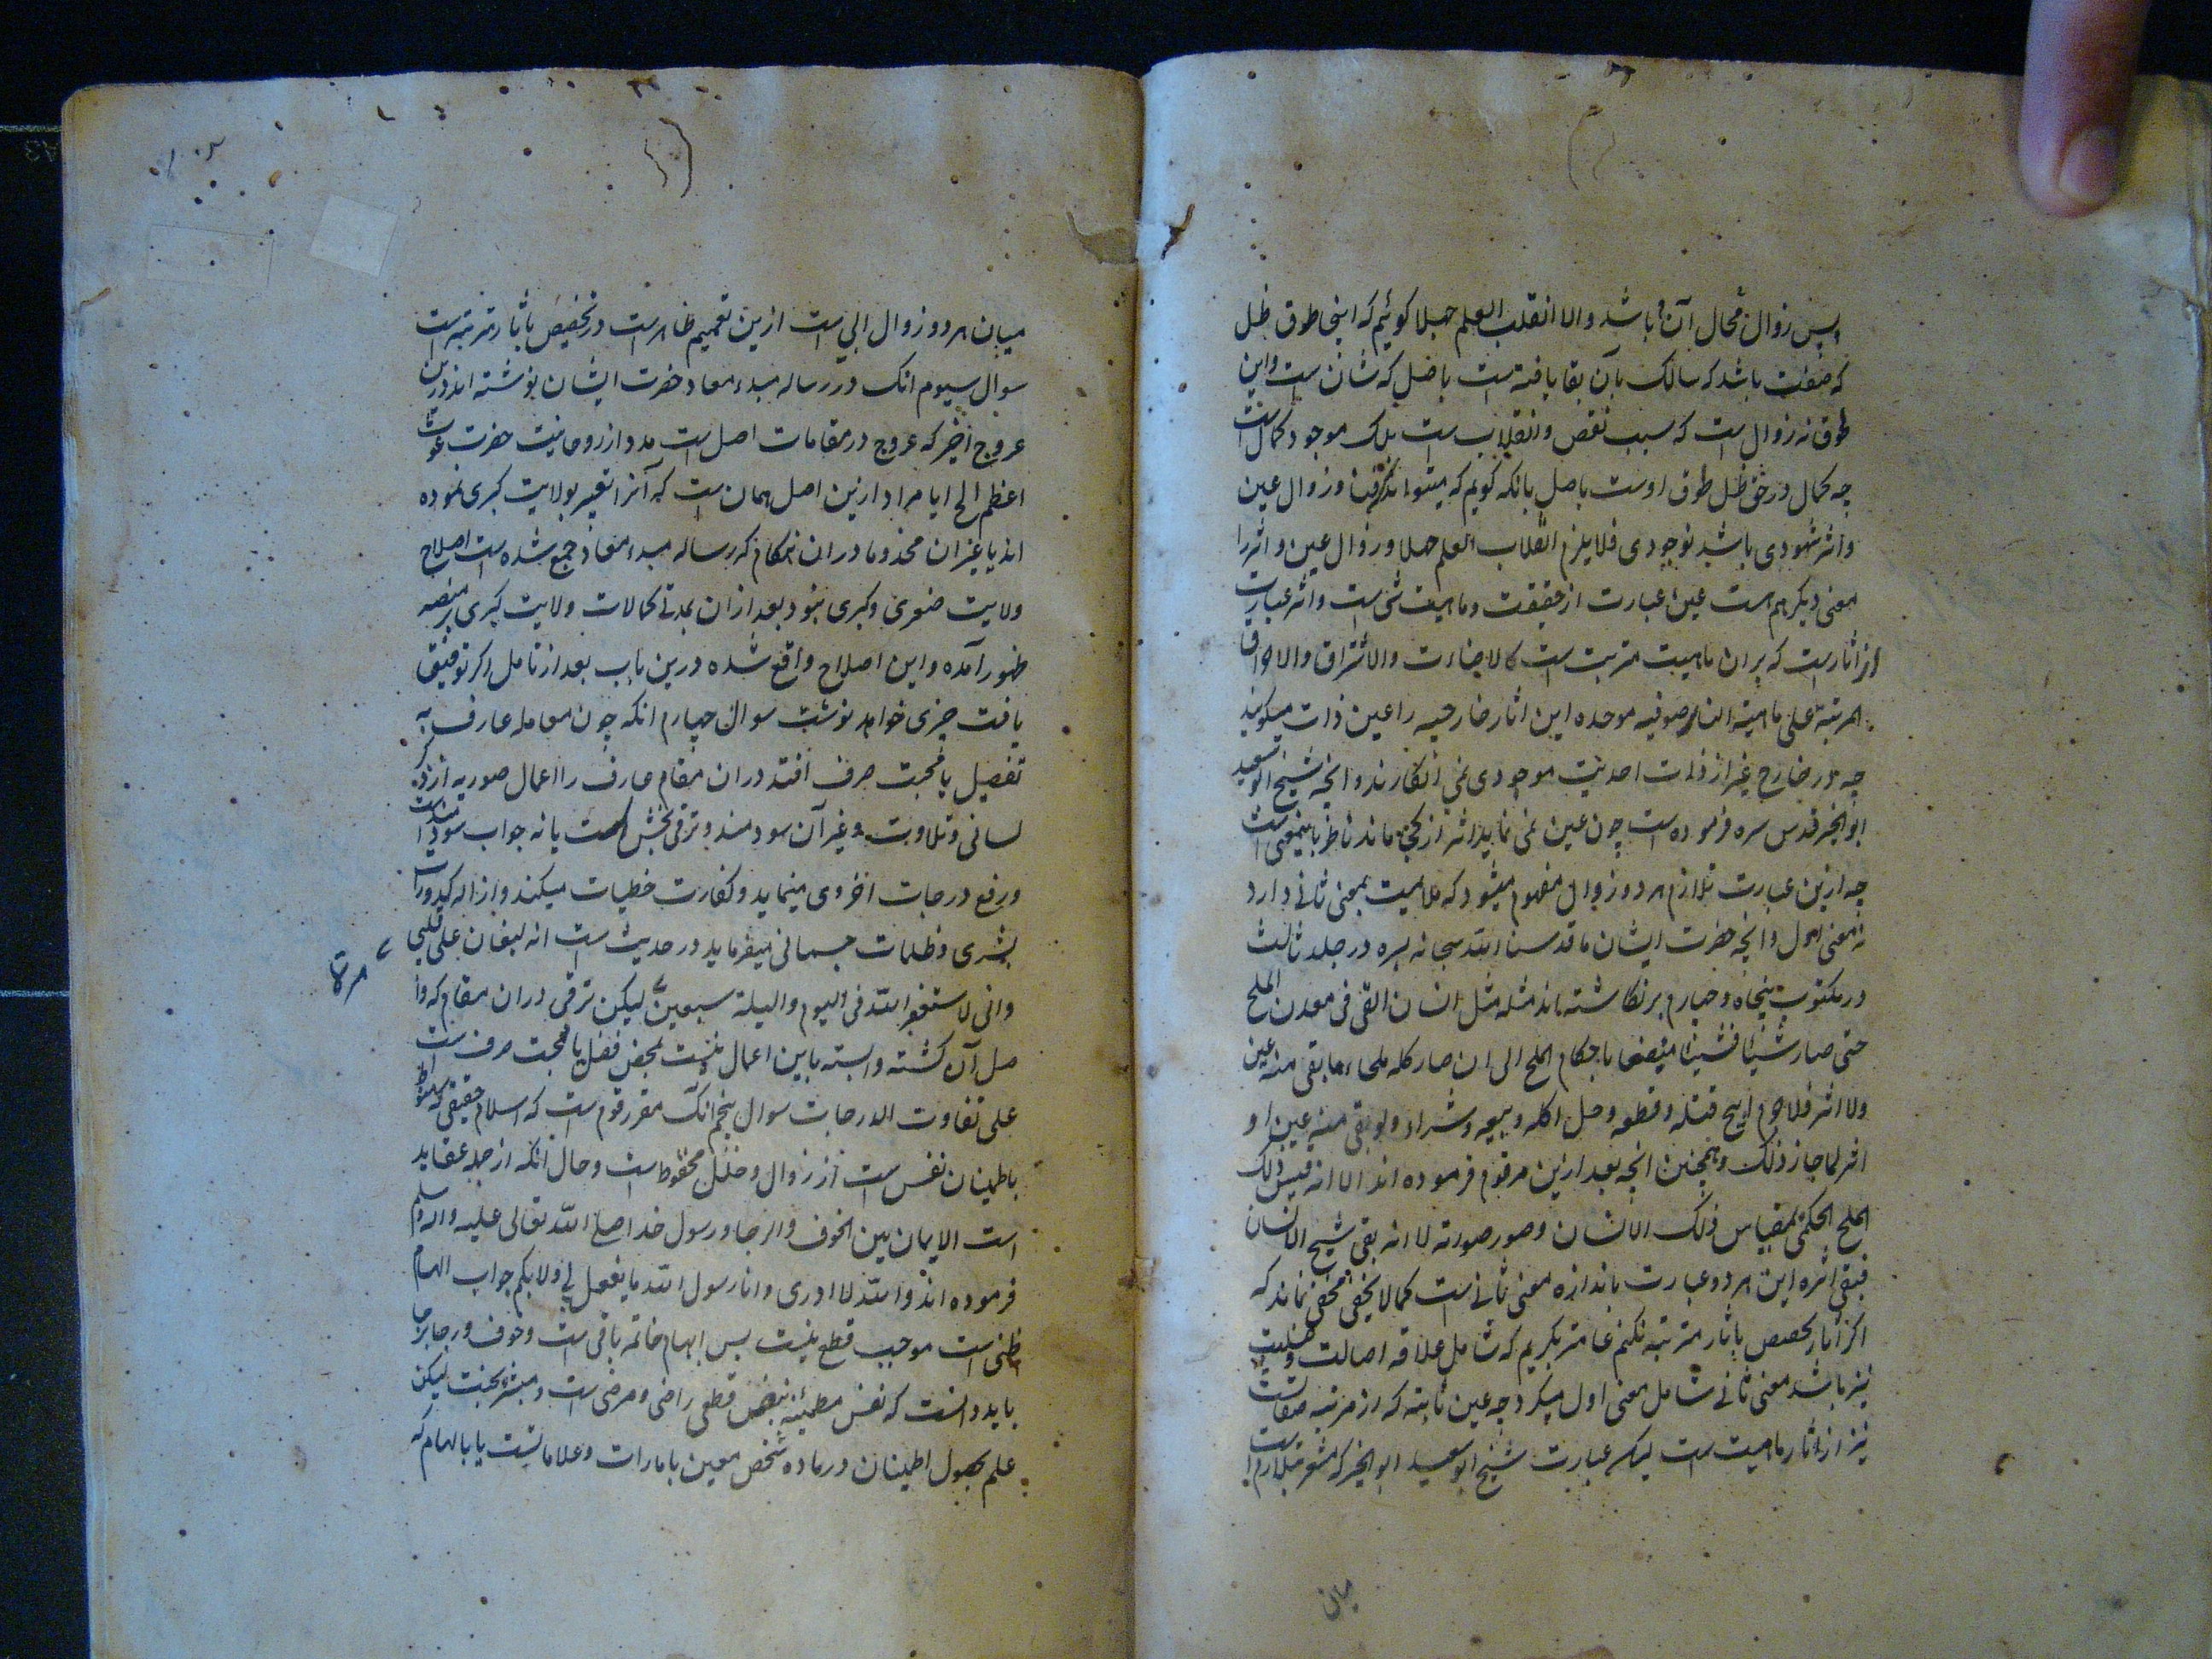 پس زوال محال آن باشد والا انقلب العلم جهلا کوئیم که اینجا طوق ظل
که صفت باشد که سالک بآن بقا یافته است باصل که شان است واین
طوق نه زوال است که سبب نقص وانقلاب است بلک موجود کمال است
چه کمال در حق ظل طوق اوست باصل بانکه کویم که میتواند رفت وزوال عین
واثر شهودی باشد نوجودی فلا یلزم انقلاب العلم جهلا وزوال عین واثر را
معنی دیگر هم هست عین عبارت از حقیقت وماهیت شی است واثر عبارت
از آثارست که بران ماهیت مترتب است کالاضاءت والاشراق والاحراق
المرتبة علی ماهیة النار صوفیه موحده این اثار خارجیه را عین ذات میکویند
چه در خارج غیر از ذات احدیت موجودی نمی انکارند وانچه شیخ ابو سعید
ابوالخیر قدس سره فرموده است چون عین نمی نماید اثر از کجا ماند ناظر باینمعنی است
چه ازین عبارت تلازم هر دو زوال مفهوم میشود که ملامیت بمعنی ثانی دارد
نه معنی اول وانچه حضرت ایشان ما قدسنا الله سبحانه بسره در جلد ثالث
در مکتوب پنجاه وچهارم برنکاشته اند مثله مثل انسان القی فی معدن الملح
حتی صار شیئا فشیئا متصفا باحکام الملح الی ان صار کله ملحا ما بقی منه عین
ولا اثر فلاجرم ابیح قتله وقطعه وحل اکله وبیعه وشراه ولو بقی منه عین او
اثر لما جاز ذلک وهمچنین انچه بعد ازین مرقوم فرموده اند الا انه قیس ذلک
الملح الحکمی بمقیاس ذلک الانسان وصور صورته لا انه بقی شبح الانسان
فبقی اثره این هر دو عبارت باندازه معنی ثانی است کما لا یخفی مخفی نماند که
اکر آثار تخصیص بآثار مترتبه نکنم عامتر بکیریم که شامل علاقه اصالت وظلیت
نیز باشد معنی ثانی شامل معنی اول میکردد چه عین ثابته که از مرتبه صفاتست
نیز از اثار ماهیت است لیکن عبارت شیخ ابو سعید ابوالخیر که مشعر تلازم است
میان
میان هر دو زوال الی است ازین تعمیم ظاهر است در تخصیص بآثار مترتبه است
سوال سیوم انک در رساله مبدء معاد حضرت ایشان نوشته اند درین
عروج اخیر که عروج در مقامات اصل است مدد از روحانیت حضرت غوث
اعظم الخ ایا مراد ازین اصل همان است که آنرا تعبیر بولایت کبری نموده
اند یا غیر ان مخدوما دران هنکام که رساله مبدء معاد جمع شده است اصلاح
ولایت صغری وکبری نبود بعد از ان بمدتی کمالات ولایت کبری بر منصه
ظهور آمده واین اصلاح واقع شده درین باب بعد از تامل اکر توفیق
یافت چیزی خواهد نوشت سوال چهارم انکه چون معامله عارف به
تفصیل یا محبت صرف افتد دران مقام عارف را اعمال صوریه از ذکر
لسانی وتلاوت وغیر آن سودمند وترقی بخش است یا نه جواب سودمند است
ورفع درجات اخروی مینماید وکفارت خطیات میکند وازاله کدورات
بشری وظلمات جسمانی میفرماید در حدیث است انه لیغان علی قلبی
وانی لاستغفر الله فی الیوم واللیلة سبعین لیکن ترقی دران مقام که وا
مرة
صل آن کشته وابسته باین اعمال نیست بمحض فضل یا محبت صرف است
علی تفاوت الدرجات سوال پنجم انک مقرر قوم است که اسلام حقیقی که منوط
باطمینان نفس است از زوال وخلل محفوظ است وحال انکه از جمله عقاید
است الایمان بین الخوف والرجا ورسول خدا صلی الله تعالی علیه واله وسلم
فرموده اند والله لا ادری وانا رسول الله ما یفعل بی ولا بکم جواب الهام
ظنی است موجب قطع نیست پس ابهام خاتمه باقی است وخوف ورجا برجا
باید دانست که نفس مطمئنه بنص قطعی راضی ومرضی است ومبشر بجنت لیکن
علم بحصول اطمینان در ماده شخص معین بامارات وعلاماتست یا بالهام که